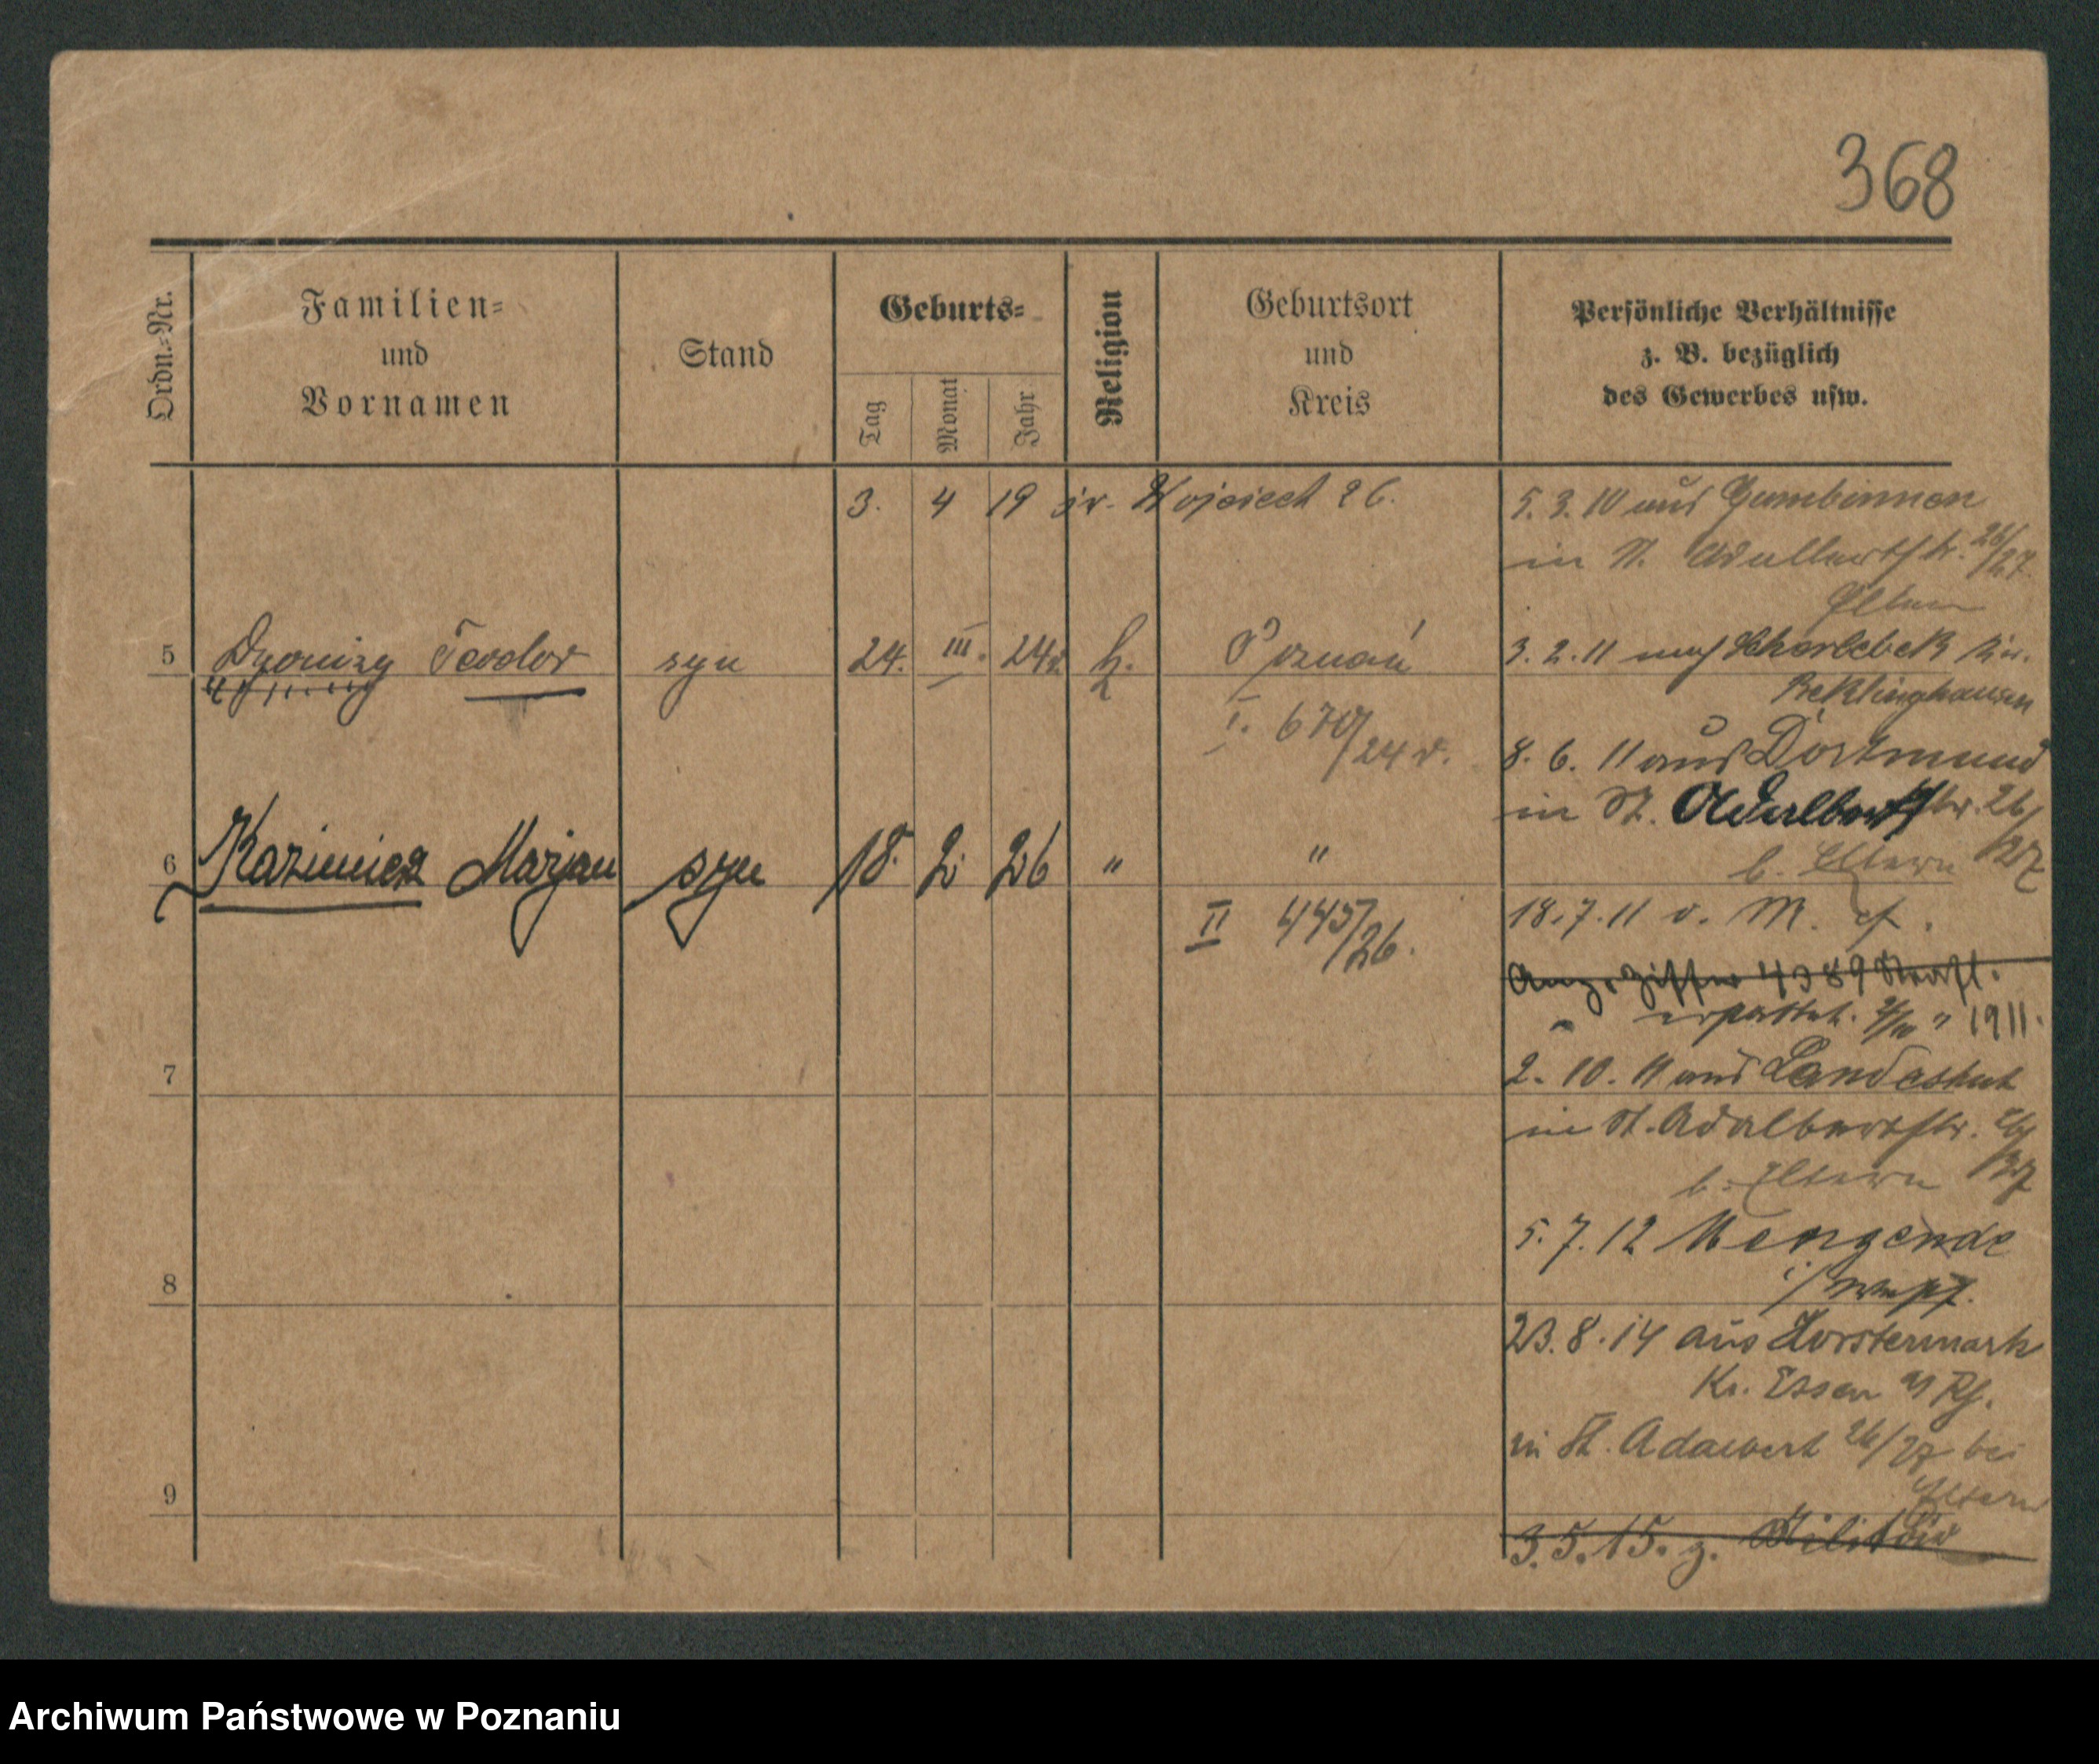 368
Ordn.-Nr.
Familien-
und
Vornamen
Stand
Geburts-
Tag
Monat
Jahr
Religion
Geburtsort
und
Kreis
Persönliche Verhältnisse
z. B. bezüglich
des Gewerbes usw.
3. 4 19 św. Wojciech 26.
5 Dyonizy Teodor syn 24. III. 24r. k. Poznań
I. 670/24 r.
6 Kazimierz Marjan syn 18. 2. 26 " "
II 445/26.
7
8
9
5.3.10 aus Gumbinnen
in St. Adalbertstr. 26/27
Eltern
3.2.11 nach
Recklinghausen
8.6.11 aus Dortmund
in St. Adalbertstr. 26/27
b. Eltern
18.7.11 v. M.
Anz. Ziffer 4389
" erstattet. " 1911.
2.10.11 aus Landeshut
in St. Adalbertstr. 26/27
b. Eltern
5.7.12 Mengende
i/Westf.
23.8.14 aus Horstermark
Kr. Essen
in St. Adalbert 26/27 bei
Eltern
3.5.15. z. Militär
Archiwum Państwowe w Poznaniu